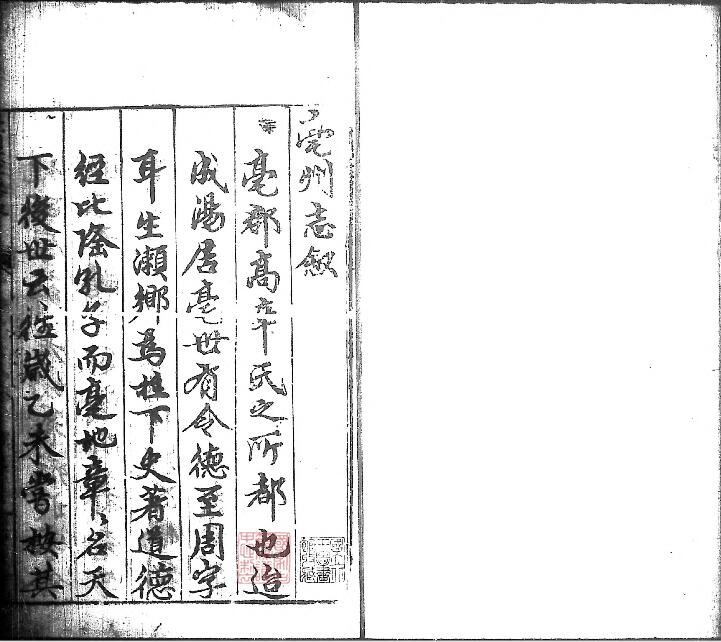 亳州志叙
亳郡高辛氏之所都也迨
成湯居亳世有令德至周字
耳生瀨鄉爲柱下史著道德
經比隆孔子而亳地章〻名天
下後世云往歲乙未嘗按其